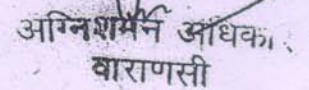 अग्निशमन अधिका
वाराणसी